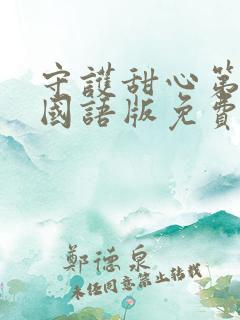 守護甜心第
國語版免費
鄭德泉
未经同意禁止转载